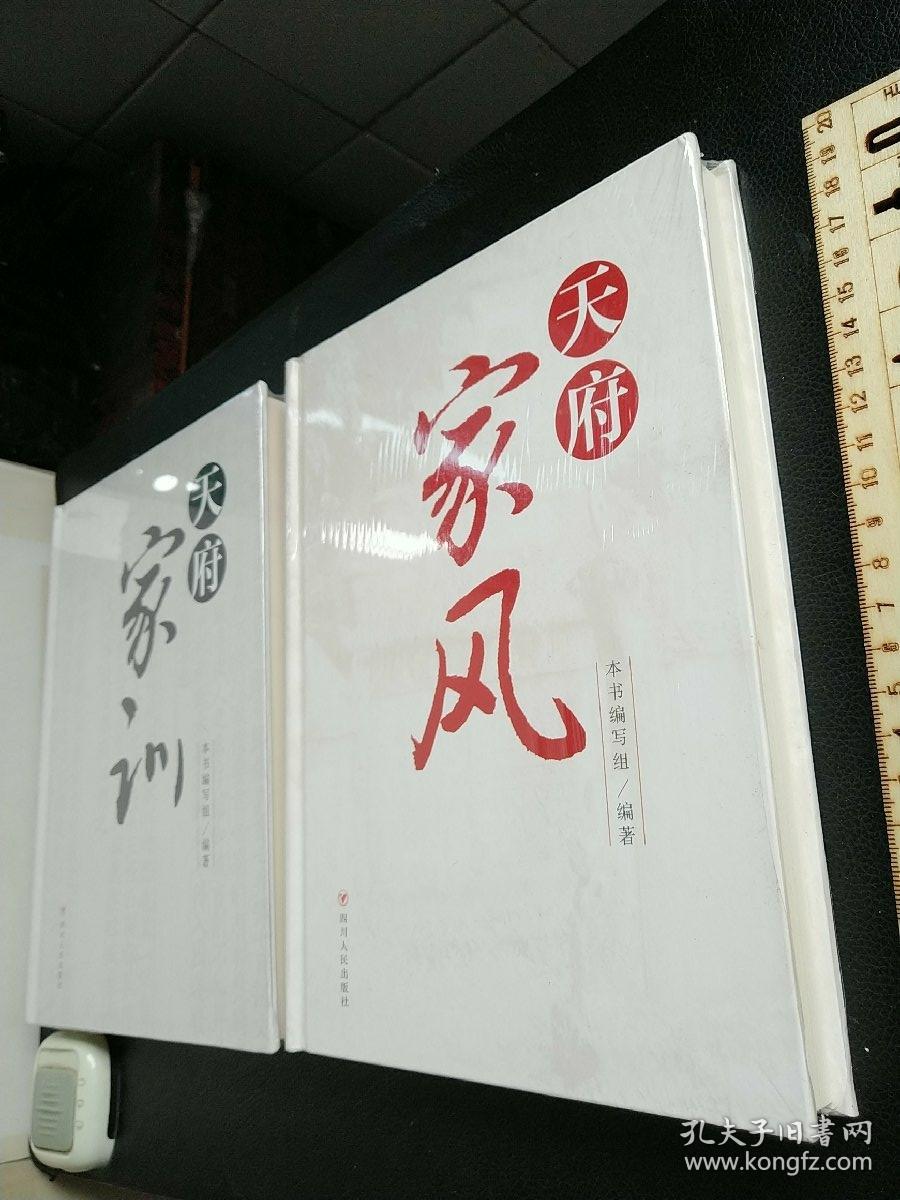 天府
家训
本书编写组/编著
天府
家风
本书编写组/编著
四川人民出版社
20
19
18
17
16
15
14
13
12
11
10
9
8
7
6
5
4
孔夫子旧書网
www.kongfz.com